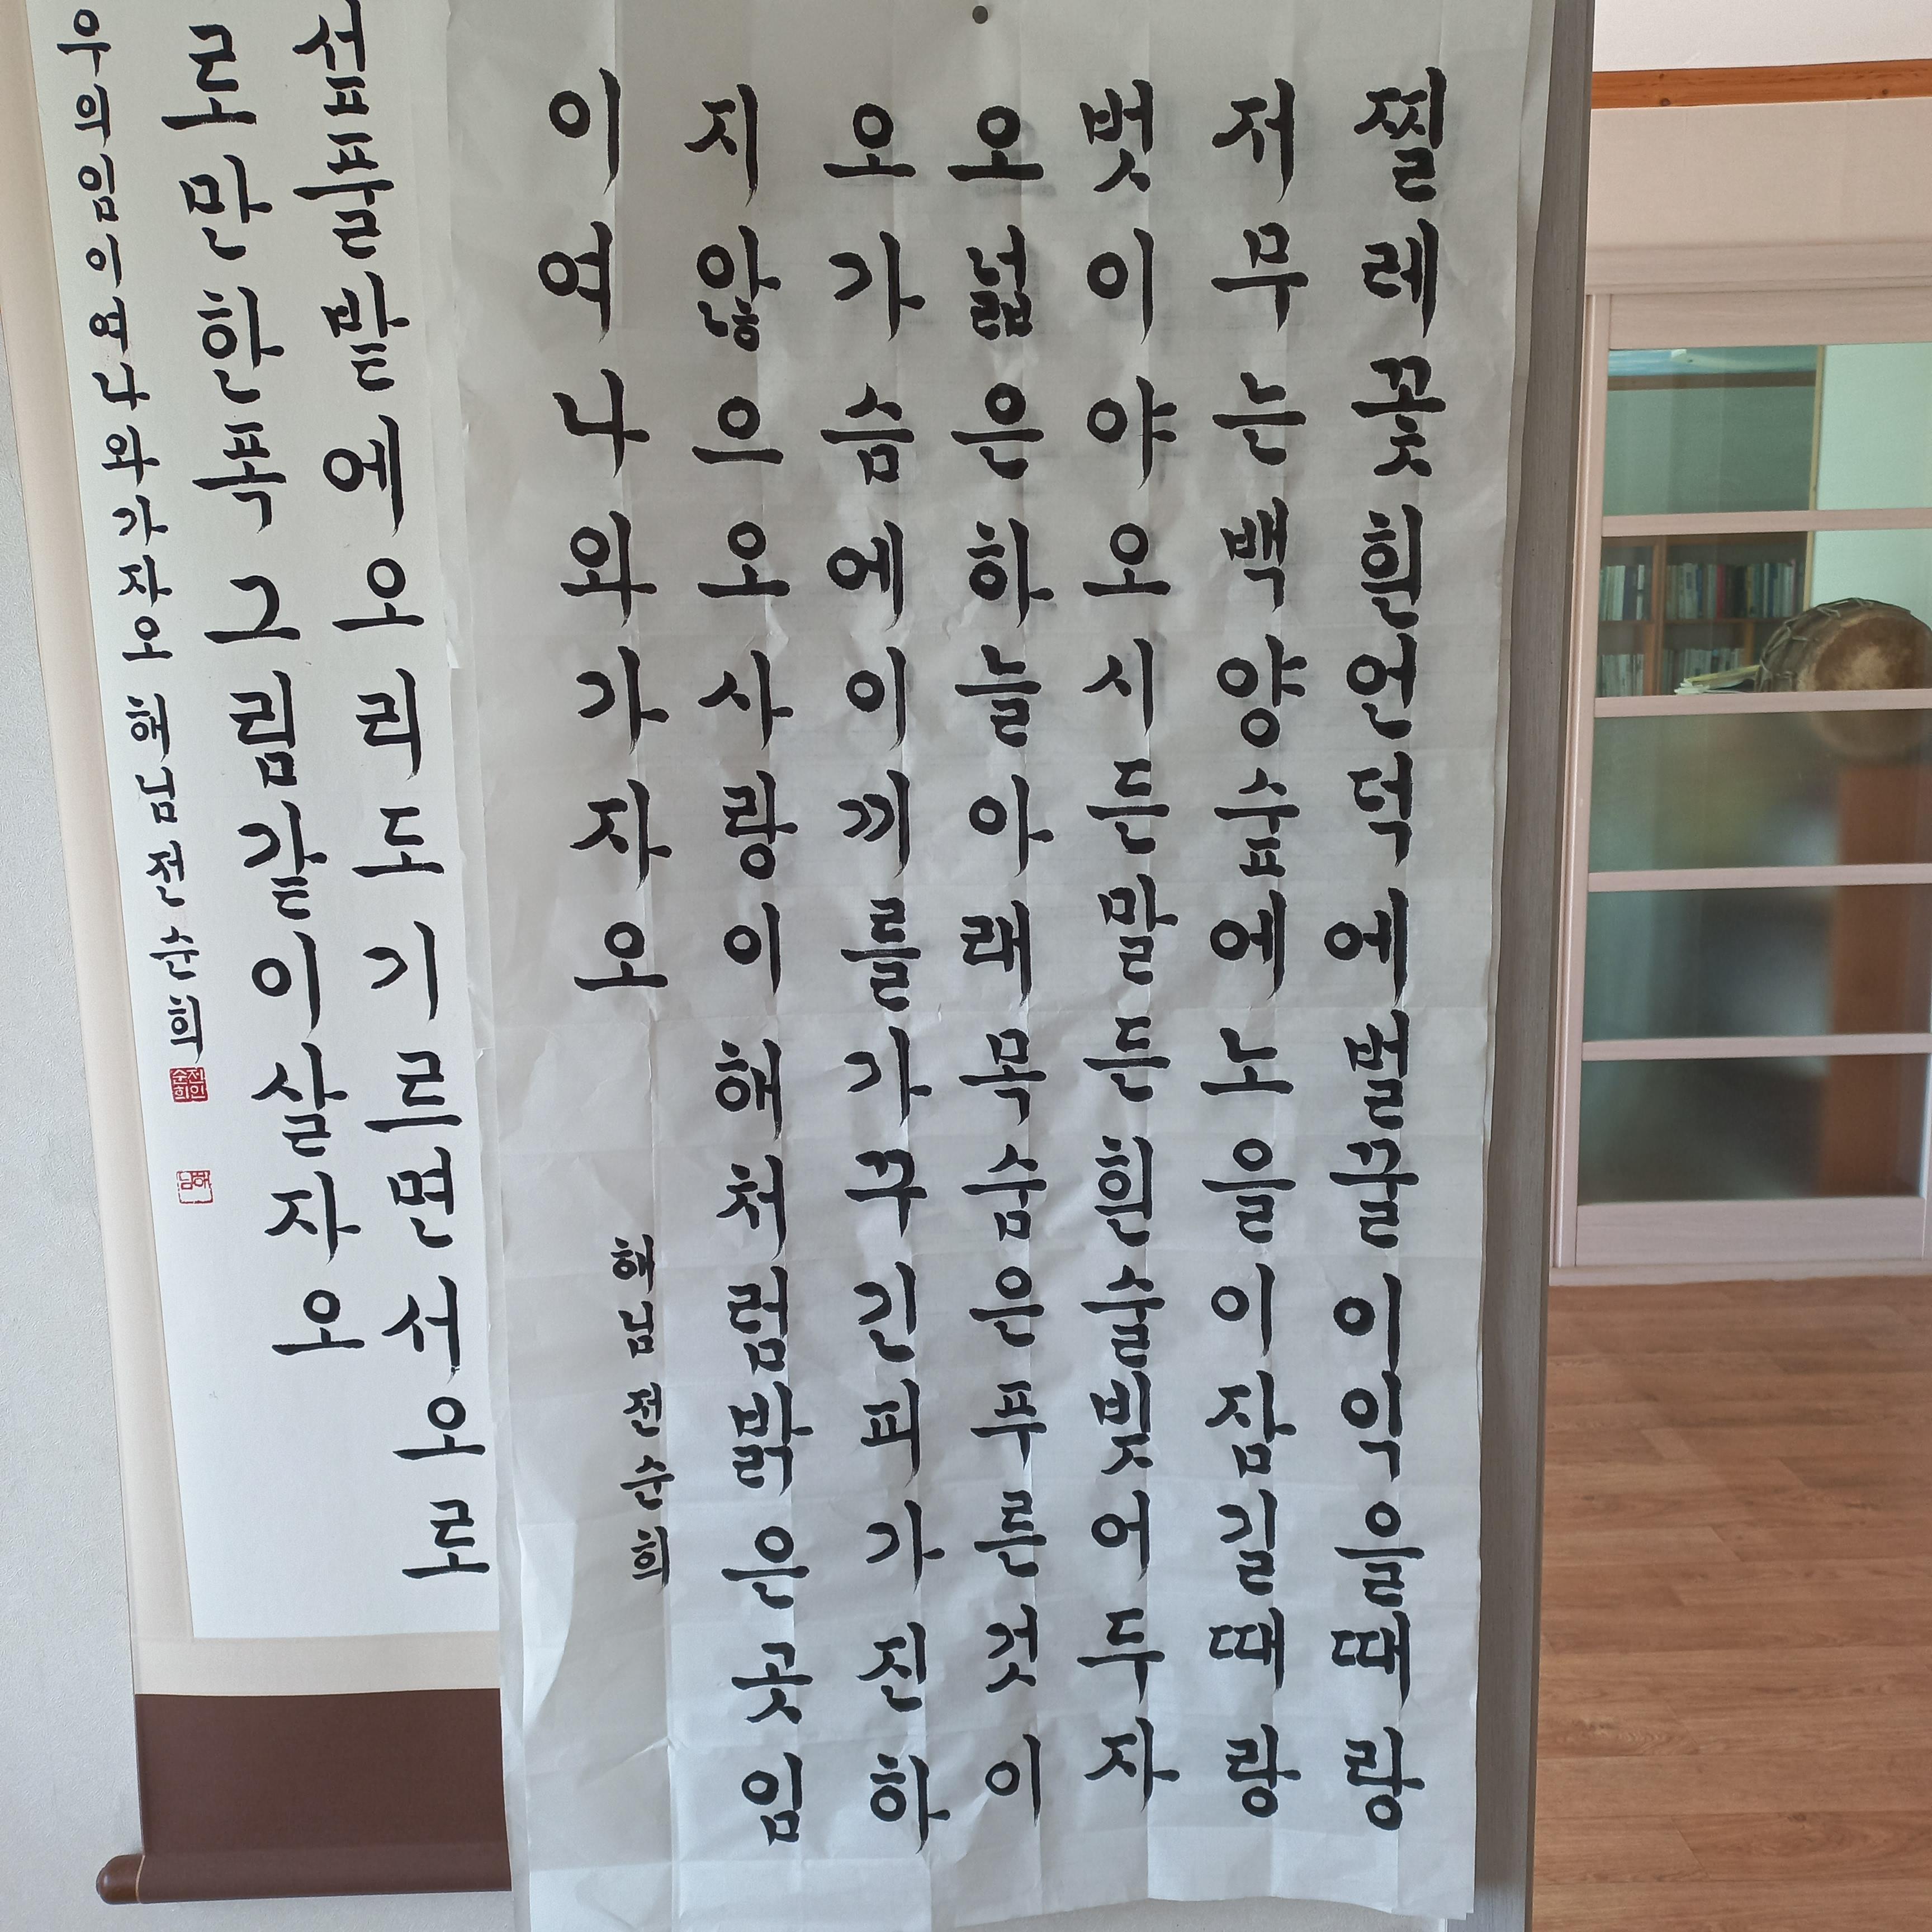 찔레꽃흰언덕에벌꿀이익을때랑
저무는백양숲에노을이잠길때랑
벗이야오시든말든흰술빚어두자
오넓은하늘아래목숨은푸른것이
오가슴에이끼를가꾸긴피가진하
지않으오사랑이해처럼밝은곳임
이여나와가자오
해님전순희
섶풀밭에오리도기르면서오로
로만한폭그림같이살자오
우의임이여나와가자오 해님전순희